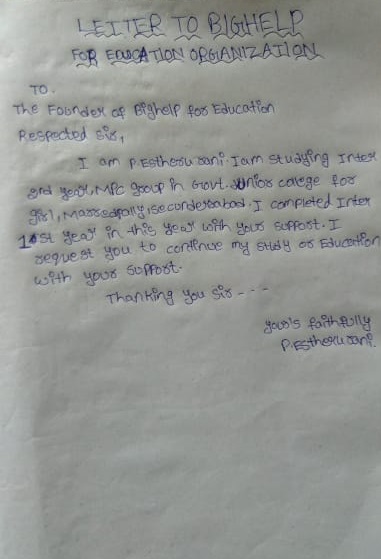 LETTER TO BIGHELP
FOR EDUCATION ORGANIZATION
TO.
The Founder of Bighelp for Education
Respected sir,
I am P.Estheru rani. Iam studying Inter
2nd year, MPC group in Govt. Junior college for
girl, Marredpally, secunderabad. I completed Inter
1st year in this year with your support. I
request you to continue my study or Education
with your support.
Thanking you sir - - -
your's faithfully
P.Estheru rani.